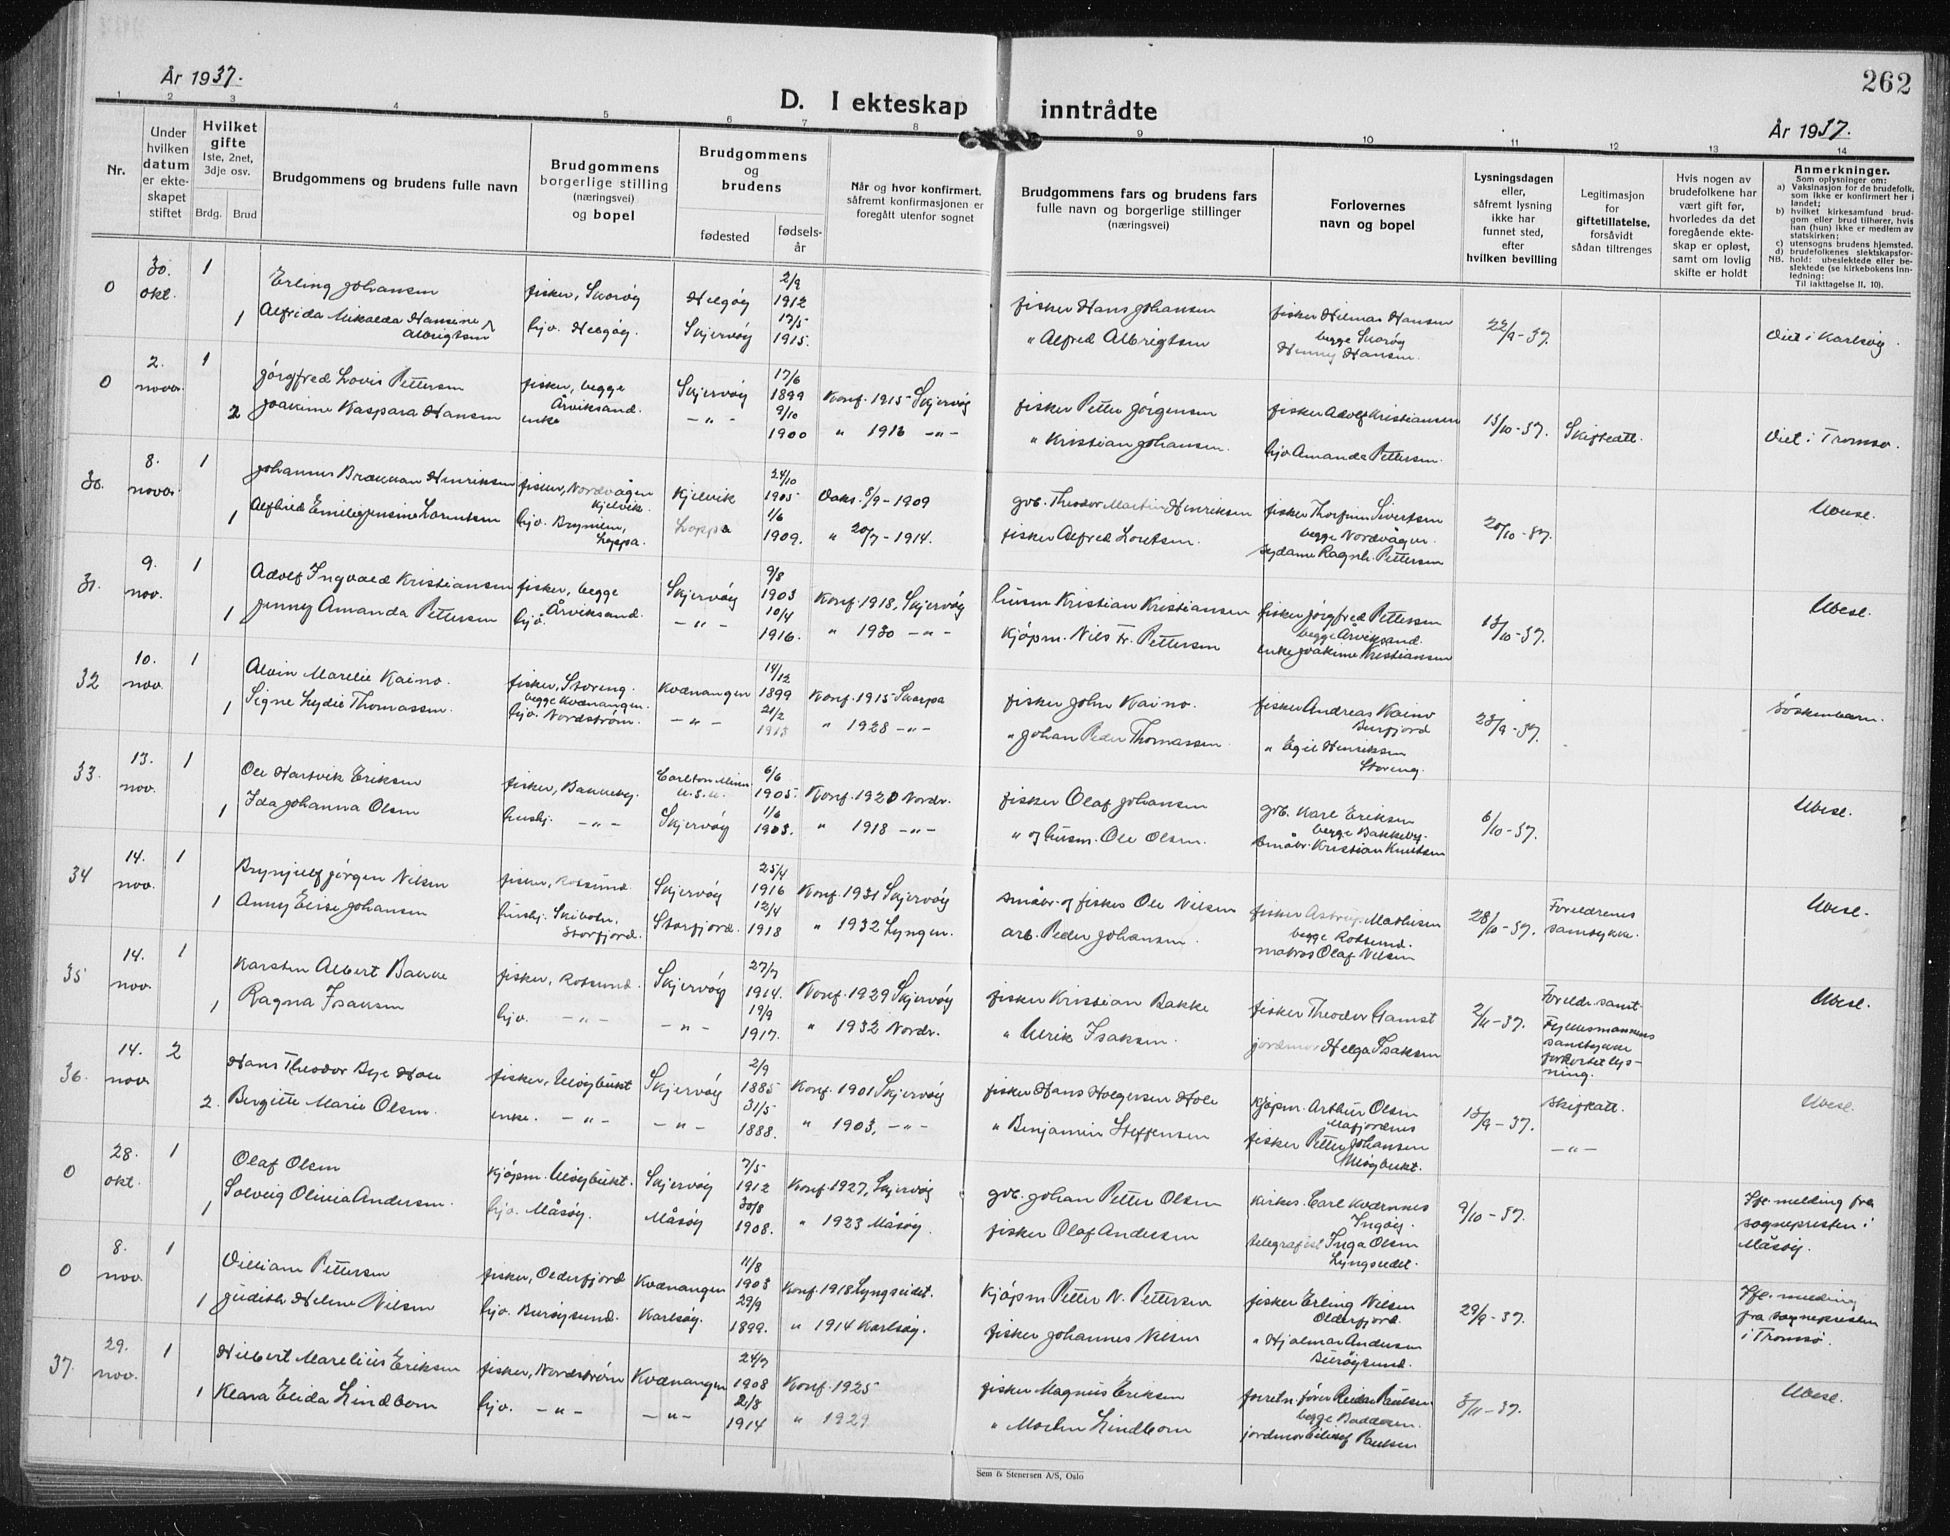 262
År 1937.
D. I ekteskap inntrådte
År 1937.
1 2 3 4 5 6 7 8 9 10 11 12 13 14
Nr.
Under hvilken datum er ekteskapet stiftet
Hvilket gifte
1ste, 2net, 3dje osv.
Brdg. Brud
Brudgommens og brudens fulle navn
Brudgommens borgerlige stilling (næringsvei) og bopel
Brudgommens og brudens
fødested
fødselsår
Når og hvor konfirmert, såfremt konfirmasjonen er foregått utenfor sognet
Brudgommens fars og brudens fars fulle navn og borgerlige stillinger (næringsvei)
Forlovernes navn og bopel
Lysningsdagen eller, såfremt lysning ikke har funnet sted, efter hvilken bevilling
Legitimasjon for giftetillatelse, forsåvidt sådan tiltrenges
Hvis nogen av brudefolkene har vært gift før, hvorledes da det foregående ekteskap er opløst, samt om lovlig skifte er holdt
Anmerkninger.
Som oplysninger om:
a) Vaksinasjon for de brudefolk, som ikke er konfirmert her i landet;
b) hvilket kirkesamfund brudgom eller brud tilhører, hvis han (hun) ikke er medlem av statskirken;
c) utensogns brudens hjemsted.
d) brudefolkenes slektskapsforhold: ubeslektede eller beslektede (se kirkebokens Innledning:
NB.
Til iakttagelse II, 10).
0 30. okt. 1 Erling Johansen fisker, Skorøy Helgøy 2/9 1912 fisker Hans Johansen fisker Hilmar Hansen begge Skorøy 22/9-37. Viet i Karlsøy.
1 Alfrida Mikalda Hansine Albrigtsen hjv. Helgøy. Skjervøy 17/5 1915. " Alfred Albrigtsen Henny Hansen.
0 2. novbr. 1 Jørgfred Lovis Pettersen fisker, begge Årviksand. Skjervøy 17/6 1899 Konf. 1915 Skjervøy fisker Petter Jørgensen fisker Adolf Kristiansen 13/10-37. Skifteatt. Viet i Tromsø.
2 Joakime Kaspara Hansen enke -"- 9/10 1900 " 1916 -"- " Kristian Johansen. hjv. Amanda Pettersen.
30. 8. novbr. 1 Johannes Brækkan Henriksen fisker, Nordvågen Kjelvik. Kjelvik 24/10 1905 Vaks. 8/9-1909 gvb. Theodor Martin Henriksen fisker Thorfinn Sivertsen begge Nordvågen. 20/10-37. Ubesl.
1 Alfhild Emilie Jensine Lorentsen hjv. Brynilen, Loppa. Loppa 1/6 1909. " 20/7-1914. fisker Alfred Lorentsen. sydame Ragnh. Pettersen
31. 9. nov. 1 Adolf Ingvald Kristiansen fisker, begge Årviksand. Skjervøy 9/8 1903 Konf. 1918, Skjervøy husm Kristian Kristiansen fisker Jørgfred Pettersen begge Årviksand 13/10-37. Ubesl.
1 Jenny Amanda Pettersen hjv. -"- 10/4 1916. " 1930 -"- Kjøpm. Nils Fr. Pettersen enke Joakime Kristiansen
32 10. nov. 1 Alvin Marelie Kaino. fisker, Storeng. begge Kvænangen. Kvænangen 14/12 1899 Konf. 1915 Skarpa fisker John Kaino. fisker Andreas Kaino Burfjord 23/9-37. Søskenbarn.
1 Signe Lydie Thomassen. hjv. Nordstrøm. -"- 21/2 1913 " 1928 -"- " Johan Peder Thomassen. " Egil Henriksen Storeng.
33 13. nov. 1 Ole Hartvik Eriksen fisker, Bakkeby. Carlton Minn U.S.A. 6/6 1905. Konf. 1920 Nordr. fisker Olaf Johansen gvb. Karl Eriksen begge Bakkeby. 6/10-37. Ubesl.
1 Ida Johanna Olsen hushj. -"- Skjervøy 1/6 1903. " 1918 -"- " og husm. Ole Olsen. Småbr. Kristian Knutsen
34 14. nov. 1 Brynjulf Jørgen Nilsen fisker, Rotsund. Skjervøy 25/4 1916 Konf. 1931 Skjervøy småbr. og fisker Ole Nilsen fisker Astrup Mathisen begge Rotsund. 28/10-37. Foreldrenes samtykke. Ubesl.
1 Anny Elise Johansen hushj. Skibotn, Storfjord. Storfjord. 12/4 1918 " 1932 Lyngen. arb. Peder Johansen. matros Olaf Nilsen
35 14. nov. 1 Karsten Albert Bakke fisker, Rotsund. Skjervøy 27/7 1914. Konf. 1929 Skjervøy fisker Kristian Bakke fisker Theodor Gamst 2/11-37. Foreldr. samt. Fylkesmannens samtykke forkortet lysning. Ubesl.
1 Ragna Isaksen hjv. -"- -"- 19/9 1917. " 1932 Nordr. " Ulrik Isaksen. jordmor Helga Isaksen
36. 14. nov. 2 Hans Theodor Bye Hole fisker, Uløybukt Skjervøy 2/9 1885 Konf. 1901 Skjervøy fisker Hans Holgersen Hole Kjøpm. Arthur Olsen Mafjordnes 13/9-37. Skifteatt. Ubesl.
2. Birgitte Marie Olsen. enke. -"- -"- 31/5 1888. " 1903, -"- " Benjamin Steffensen fisker Petter Johansen Uløybukt. -"-
0 28. okt. 1 Olaf Olsen Kjøpm. Uløybukt. Skjervøy 7/5 1912 Konf. 1927, Skjervøy gvb. Johan Petter Olsen Kirkes. Carl Kvernnes Ingøy. 9/10-37. Ifl. melding fra sognepresten i Måsøy.
1 Solveig Olivia Andersen. hjv. Måsøy. Måsøy 30/8 1908. " 1923 Måsøy. fisker Olaf Andersen telegrafist Inga Olsen Lyngseidet.
0 8. nov. 1 William Pettersen fisker, Olderfjord Kvænangen 11/8 1903 Konf. 1918 Lyngseidet. Kjøpm Petter N. Pettersen fisker Erling Nilsen Olderfjord. 29/9-37. Ifl. melding fra sognepresten i Tromsø.
1 Judith Helene Nilsen hjv. Burøysund. Karlsøy. 29/9 1899. " 1914 Karlsøy. fisker Johannes Nilsen " Hjalmar Andersen Burøysund.
37. 29. nov. 1 Hilbert Marelius Eriksen fisker, Nordstrøm Kvænangen 24/7 1908 Konf. 1925 fisker Magnus Eriksen forretn. fører Reidar Paulsen begge Badderen. 3/11-37. Ubesl.
1 Klara Elida Lindbom hjv. -"- -"- 21/8 1914 " 1929. " Morten Lindbom jordmor Paulsen
Sem & Stenersen A/S, Oslo